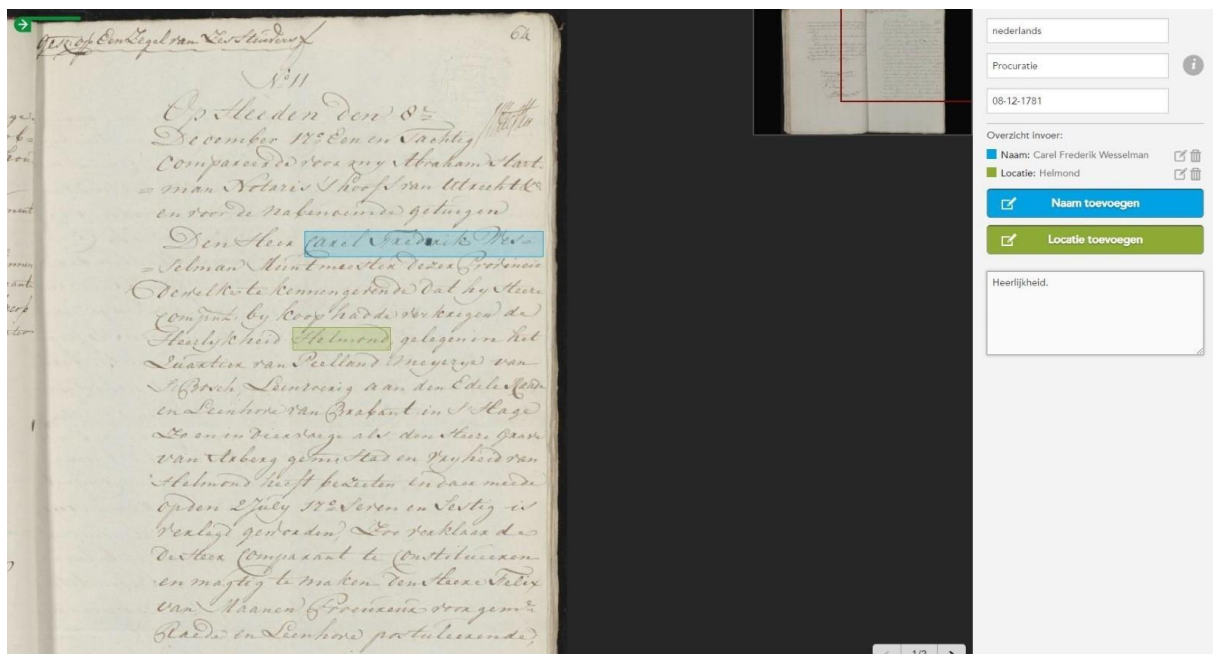 gesz: op Een Zegel van Zes Stuivers
64
No 11
Op Heeden den 8e
December 17c Een en Tachtig
Compareerde voor my Abraham Hart
= man Notaris 's hoofs van Utrecht &c
en voor de nabenoemde getuigen
Den Heer Carel Frederik Wes =
= selman Muntmeester dezer Provincie
Dewelke te kennen gevende dat hy Heere
Compnt. by koop hadde verkregen de
Heerlykheid Helmond, gelegen in het
Quartier van Peelland Meyerye van
s Bosch, Leenroerig aan den Edele Raade
en Leenhove van Brabant in s Hage
Zo en in dier voege als den Heere Grave
van Arberg gemt Stad en Vryheid van
Helmond heeft bezeten en daar meede
op den 2 July 17c Seven en Sestig is
verlegt geworden, Zoo verklaar de
De Heer Comparant te Constitueeren
en magtig te maken den Heere Felix
van Maanen Procureur voor gemte
Raede en Leenhove postuleerende,
nederlands
Procuratie
i
08-12-1781
Overzicht invoer:
Naam: Carel Frederik Wesselman
Locatie: Helmond
Naam toevoegen
Locatie toevoegen
Heerlijkheid.
1/2